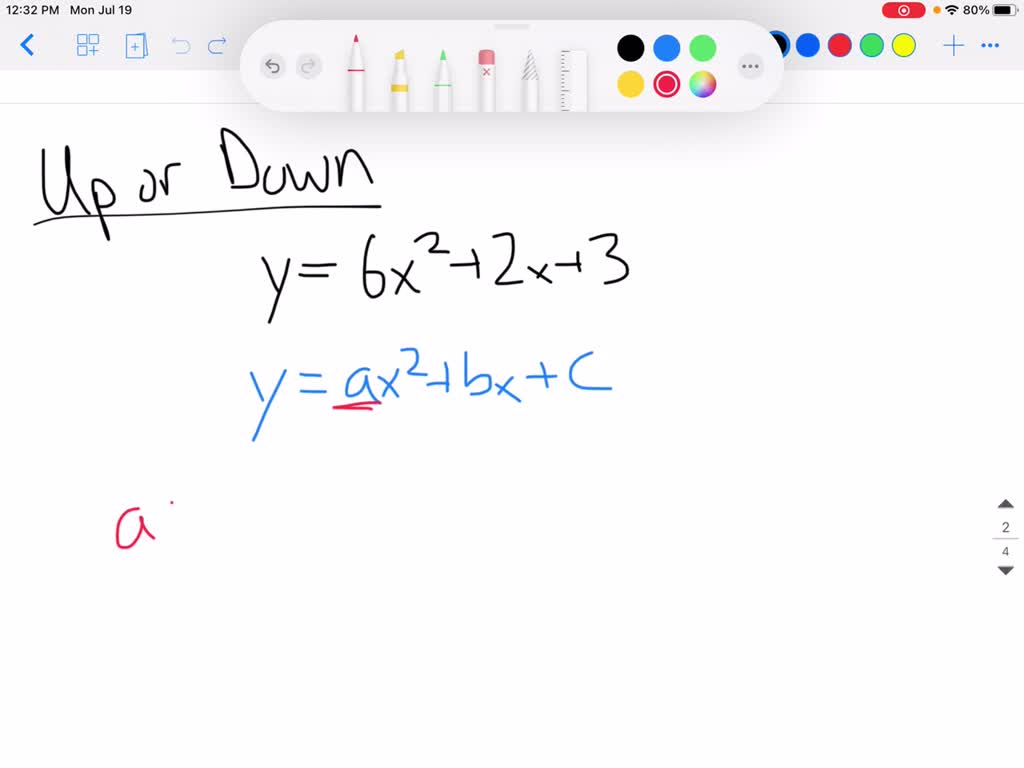 12:32 PM Mon Jul 19 80%
Up or Down
y = 6x²+2x+3
y = ax²+bx+c
a
2
4